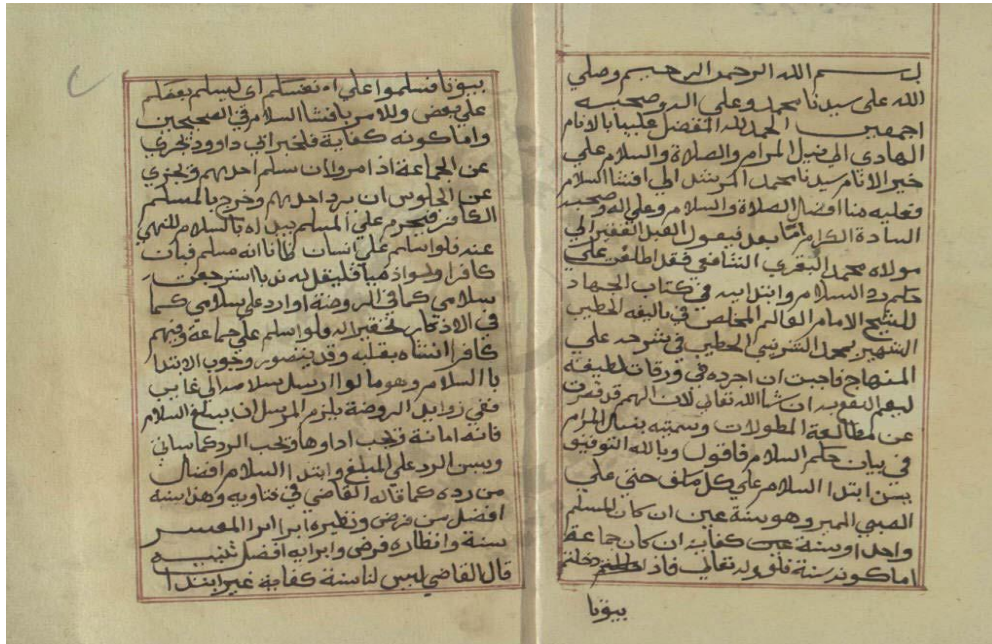 بسم الله الرحمن الرحيم وصلي
الله على سيدنا محمد وعلى اله وصحبه
اجمعين الحمد لله المتفضل علينا بالانام
الهادي الي نيل المرام والصلاة والسلام علي
خير الانام سيدنا محمد المرشد الي افشا السلام
فعليه منا افضل الصلاة والسلام وعلي اله وصحبه
السادة الكرام امّا بعد فيقول العبد الفقير الي
مولاه محمد البقري الشافعي فقد اطلعت علي
حكم رد السلام وابتدايه في كتاب الجهاد
للشيخ الامام العالم المخلص في تاليفه الخطيب
الشهير بمحمد الشربيني الخطيب في شرحه علي
المنهاج فاحببت ان اجرده في ورقات لطيفة
ليعم النفع به ان شا الله تعالي لان الهمم قد قصرت
عن مطالعة المطولات وسميته بنيل المرام
في بيان حكم السلام فاقول وبالله التوفيق
يسن ابتدا السلام علي كل مسلم حتي علي
الصبي المميز وهو سنة عين ان كان المسلم
واحدا وسنة كفاية ان كان جماعة
اما كونه سنة فلقوله تعالي فاذا دخلتم
بيوتا
بيوتا فسلموا علي انفسكم اي ليسلم بعضكم
علي بعض وللامر بافشا السلام في الصحيحين
واما كونه كفاية فلخبر ابي داوود يجزي
عن الجماعة اذا مروا ان يسلم احدهم ويجزي
عن الجلوس ان يرد احدهم وخرج بالمسلم
الكافر فيحرم علي المسلم بداه بالسلام للنهي
عنه فلو سلم علي انسان ظانا انه مسلم فبان
كافرا ولو ذميا فليقل له ندبا استرجعت
سلامي كما في الروضة او ارد علي سلامي كما
في الاذكار تحقيرا له ولو سلم علي جماعة وفيهم
كافر استثناه بقلبه وقد يتصور وجوب الابتدا
بالسلام وهو ما لو ارسل سلامه الي غايب
ففي زوايد الروضة يلزم المرسل ان يبلغ السلام
فانه امانة ويجب اداوها ويجب الرد كما ساتي
ويسن الرد علي المبلغ وابتدا السلام افضل
من رده كما قاله القاضي في فتاويه وهذا سنة
افضل من فرض ونظيره ابرا المعسر
سنة وانظاره فرض وابرايه افضل تنبيه
قال القاضي ليس لنا سنة كفاية غير ابتدا